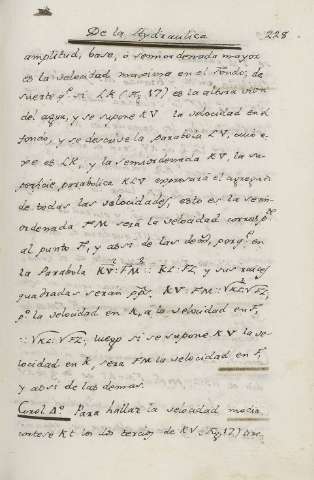 De la Hydraulica 228
amplitud, base, ó semiordenada mayor
es la velocidad maxima en el fondo, de
suerte q.e si LK (Fig. 17) es la altura viva
del agua, y se supone KV la velocidad en el
fondo, y se descrive la parabola LV, cuio
exe es LK, y la semiordenada KV, la su-
perficie parabolica KLV expresará el agregado
de todas las velocidades, esto es la semi-
ordenada FM será la velocidad corresp.te
al punto F, y absi de las demas, porq.e en
la Parabola KV²: FM² :: KL: FL y sus raices
quadradas serán KV: FM :: √KL: √FL,
la velocidad en K, a la velocidad en F,
:: √KL: √FL, luego si se supone KV la ve-
locidad en K, será FM la velocidad en F,
y absi de las demas.
Corol. 4.º Para hallar la velocidad media
cortese Kt los dos tercios de KV (Fig. 17)